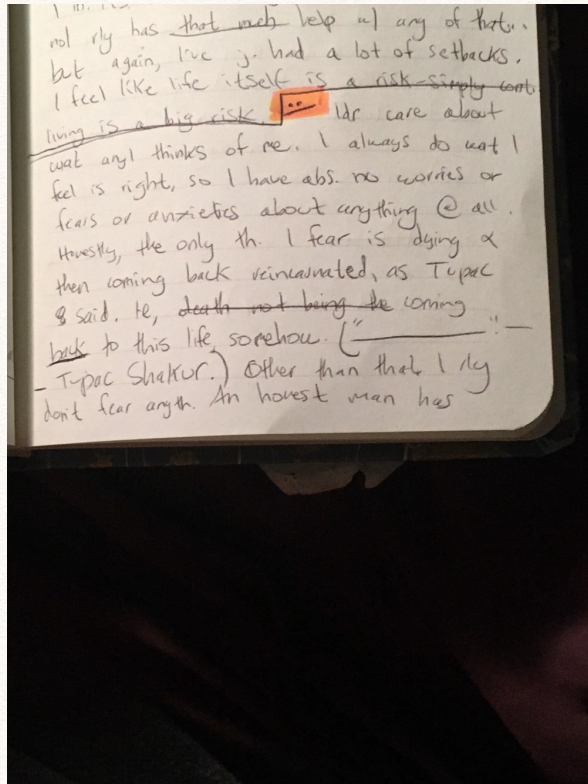 not rly has that much help w/ any of that..
but again, I've j. had a lot of setbacks.
I feel like life itself is a risk simply cont.
living is a big risk. Idr care about
wat anyl thinks of me. I always do wat I
feel is right, so I have abs. no worries or
fears or anxieties about anything @ all.
Honestly, the only th. I fear is dying &
then coming back reincarnated, as Tupac
& said. He, death not being the coming
back to this life, somehow. ("__________." —
- Tupac Shakur.) Other than that I rly
don't fear anyth. An honest man has